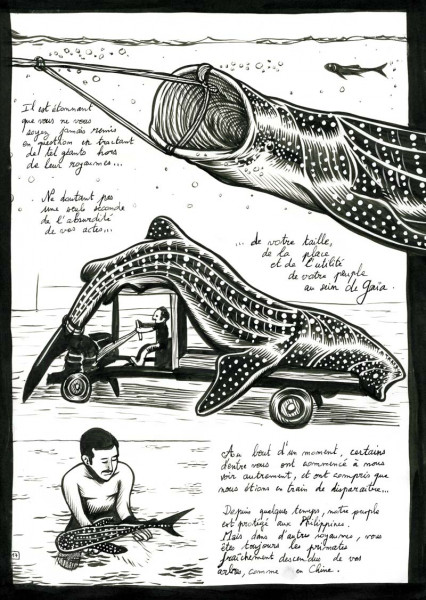 Il est étonnant
que vous ne vous
soyez jamais remis
en question en tractant
de tel géants hors
de leur royaumes...
Ne doutant pas
une seule seconde
de l'absurdité
de vos actes...
... de votre taille,
de la place
et de l'utilité
de votre peuple
au sein de Gaïa.
Au bout d'un moment, certains
d'entre vous ont commencé à nous
voir autrement, et ont compris que
nous étions en train de disparaître...
Depuis quelques temps, notre peuple
est protégé aux Philippines.
Mais dans d'autres royaumes, vous
êtes toujours les primates
fraîchement descendus de vos
arbres, comme en Chine.